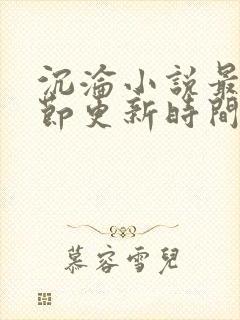 沉淪小說最
節更新時間
慕容雪兒